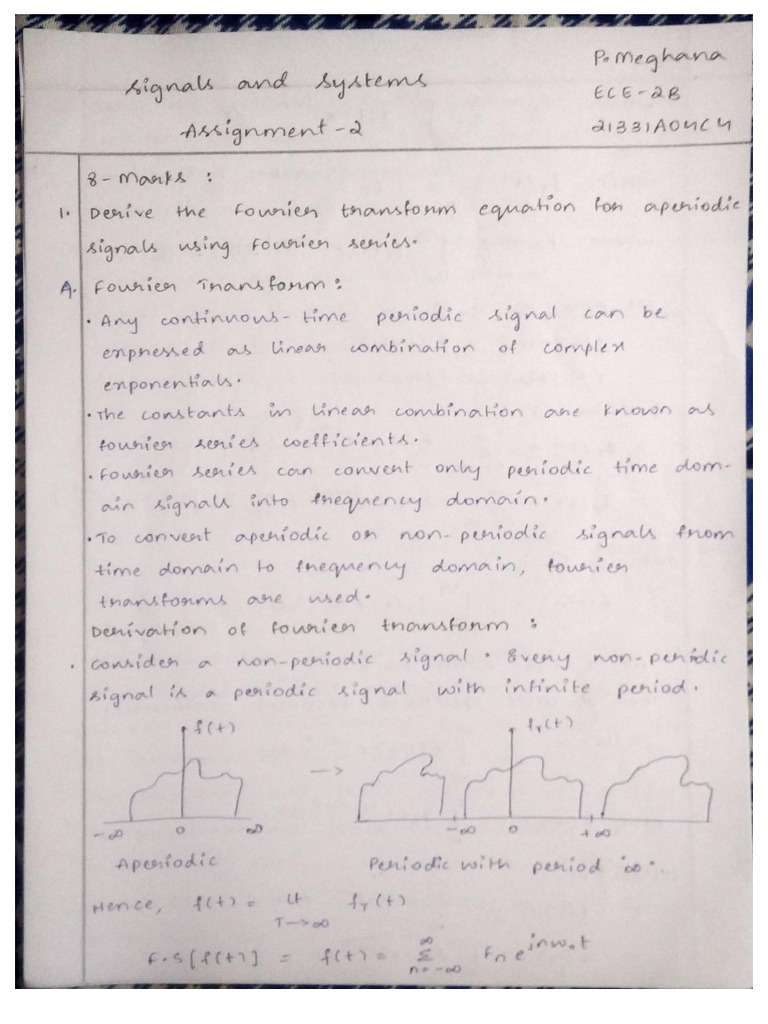 Signals and Systems
Assignment-2
P. Meghana
ECE-2B
21331A04C4
8-Marks :
1. Derive the Fourier transform equation for aperiodic
signals using Fourier series.
A. Fourier Transform:
• Any continuous-time periodic signal can be
expressed as linear combination of complex
exponentials.
• The constants in linear combination are known as
fourier series coefficients.
• Fourier series can convert only periodic time dom-
ain signals into frequency domain.
• To convert aperiodic or non-periodic signals from
time domain to frequency domain, fourier
transforms are used.
Derivation of fourier transform :
• Consider a non-periodic signal. Every non-periodic
signal is a periodic signal with infinite period.
f(t) fT(t)
→
-∞ 0 ∞ -∞ 0 +∞
Aperiodic Periodic with period '∞'.
Hence, f(t) = Lt fT(t)
T→∞
F.S[f(t)] = f(t) = ∞ Σ n=-∞ Fn e^jnω₀t